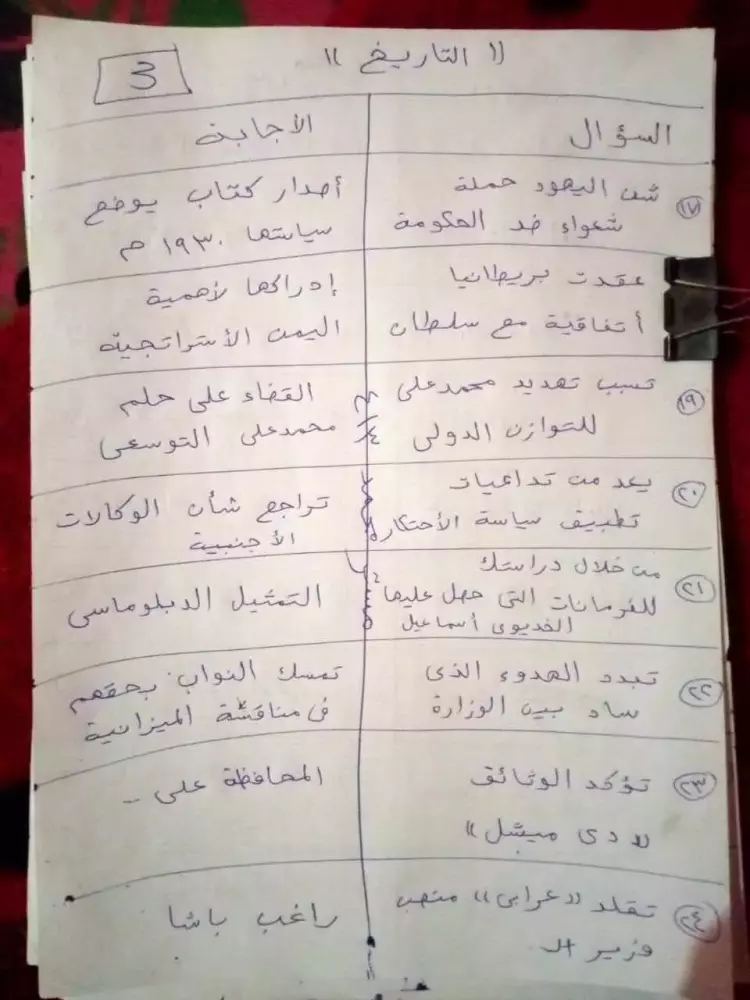 (( التاريخ ))
3
السؤال
الأجابة
١٧
شن اليهود حملة
شعواء ضد الحكومة
أصدار كتاب يوضح
سياستها ١٩٣٠ م
عقدت بريطانيا
أتفاقية مع سلطان
إدراكها لأهمية
اليمن الأستراتجية
١٩
تسبب تهديد محمد على
للتوازن الدولى
القضاء على حلم
محمد على التوسعى
٢٠
يعد من تداعيات
تطبيق سياسة الأحتكار
تراجع شأن الوكالات
الأجنبية
٢١
من خلال دراستك
للفرمانات التى حصل عليها
الخديوى أسماعيل
التمثيل الدبلوماسى
٢٢
تبدد الهدوء الذى
ساد بين الوزارة
تمسك النواب بحقهم
فى مناقشة الميزانية
٢٣
تؤكد الوثائق
لا دى ميشل))
المحافظة على --
٢٤
تقلد ((عرابى)) منصب
وزير الـ
راغب باشا